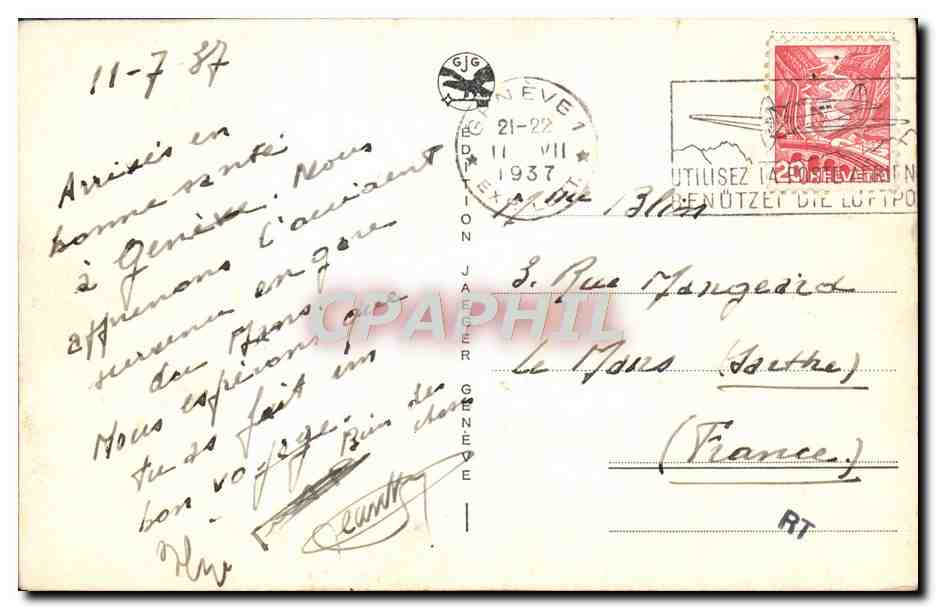 11-7-37
Arrivés en
bonne santé
à Genève. Nous
apprenons l'accident
survenu en gare
du Mans.
Nous espérons que
tu as fait un
bon voyage.
Bien des
choses
GJG
EDITION JAEGER GENÈVE
GENÈVE 1
21-22
11 VII
1937
UTILISEZ LA POSTE AERIEN
BENÜTZET DIE LUFTPO
20 HELVETIA
Mme Blin
3. Rue Mangeard
Le Mans (Sarthe)
(France.)
RT
CPAPHIL